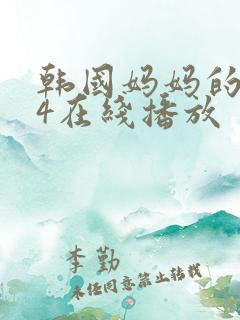 韩国妈妈的
4在线播放
李勤
未经同意禁止转载